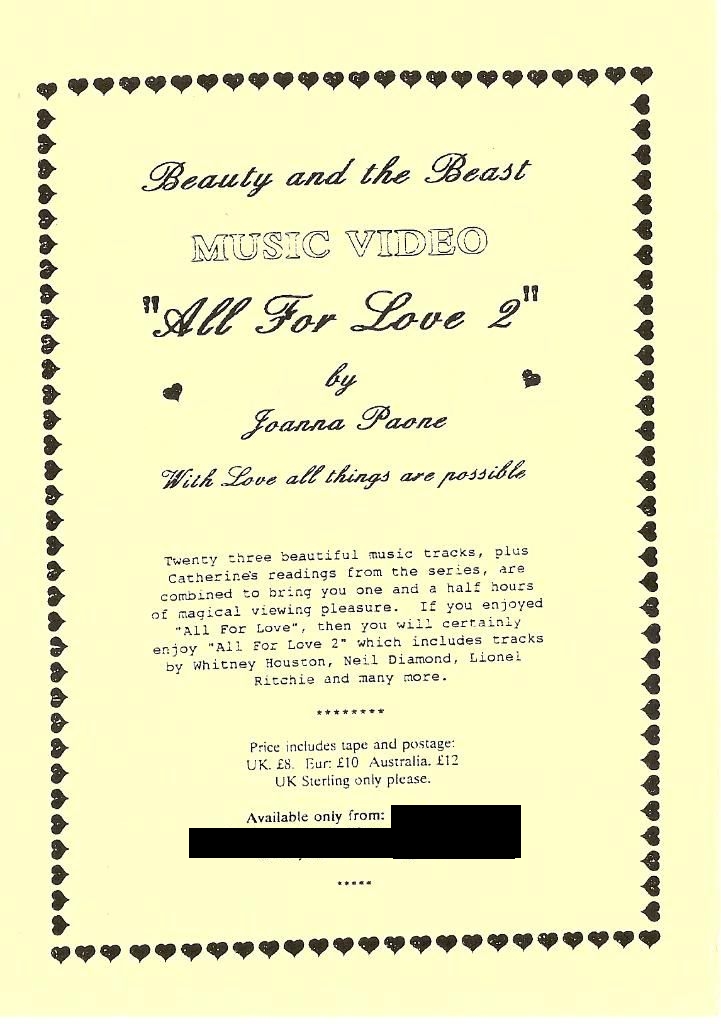 Beauty and the Beast
MUSIC VIDEO
"All For Love 2"
by
Joanna Paone
With Love all things are possible
Twenty three beautiful music tracks, plus
Catherine's readings from the series, are
combined to bring you one and a half hours
of magical viewing pleasure. If you enjoyed
"All For Love", then you will certainly
enjoy "All For Love 2" which includes tracks
by Whitney Houston, Neil Diamond, Lionel
Ritchie and many more.
********
Price includes tape and postage:
UK. £8. Eur: £10 Australia. £12
UK Sterling only please.
Available only from:
*****